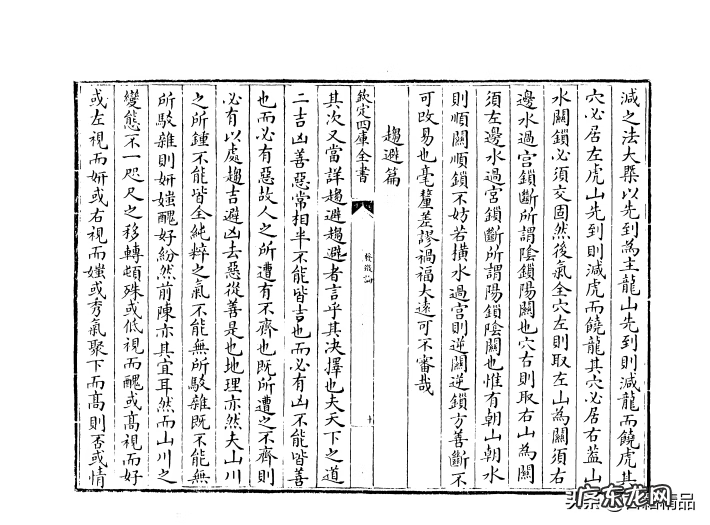 減之法大槩以先到為主龍山先到則減龍而饒虎其
穴必居左虎山先到則減虎而饒龍其穴必居右葢山
水闗鎖必須交固然後氣全穴左則取左山為闗須右
邊水過宫鎖斷所謂陰鎖陽闗也穴右則取右山為闗
須左邊水過宫鎖斷所謂陽鎖陰闗也惟有朝山朝水
則順闗順鎖不妨若橫水過宫則逆闗逆鎖方善斷不
可改易也毫釐差謬禍福大逺可不審哉
趨避篇
欽定四庫全書
發微論
其次又當詳趨避趨避者言乎其决擇也夫天下之道
二吉凶善惡常相半不能皆吉也而必有凶不能皆善
也而必有惡故人之所遭有不齊也既所遭之不齊則
必有以處趨吉避凶去惡從善是也地理亦然夫山川
之所鍾不能皆全純粹之氣不能無所駁雜既不能無
所駁雜則妍媸醜好紛然前陳亦其宜耳然而山川之
變態不一咫尺之移轉頓殊或低視而醜或髙視而好
或左視而妍或右視而媸或秀氣聚下而髙則否或情
头条
广东龙网
精品